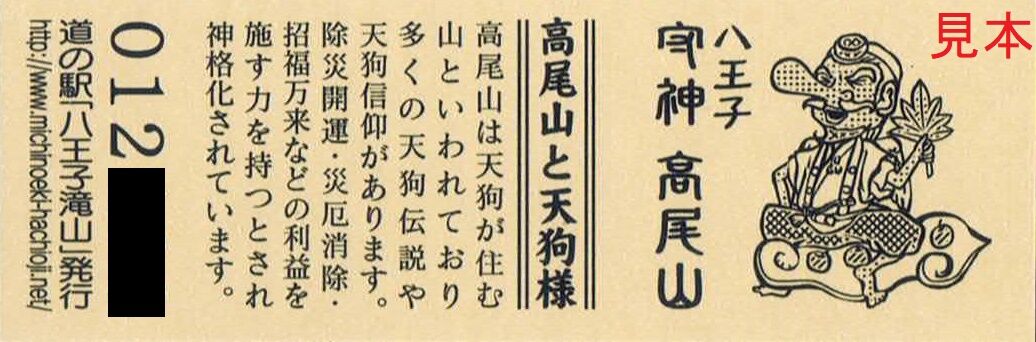 見本
八王子
守神 高尾山
高尾山と天狗様
高尾山は天狗が住む
山といわれており
多くの天狗伝説や
天狗信仰があります。
除災開運・災厄消除・
招福万来などの利益を
施す力を持つとされ
神格化されています。
012
道の駅「八王子滝山」発行
http://www.michinoeki-hachioji.net/